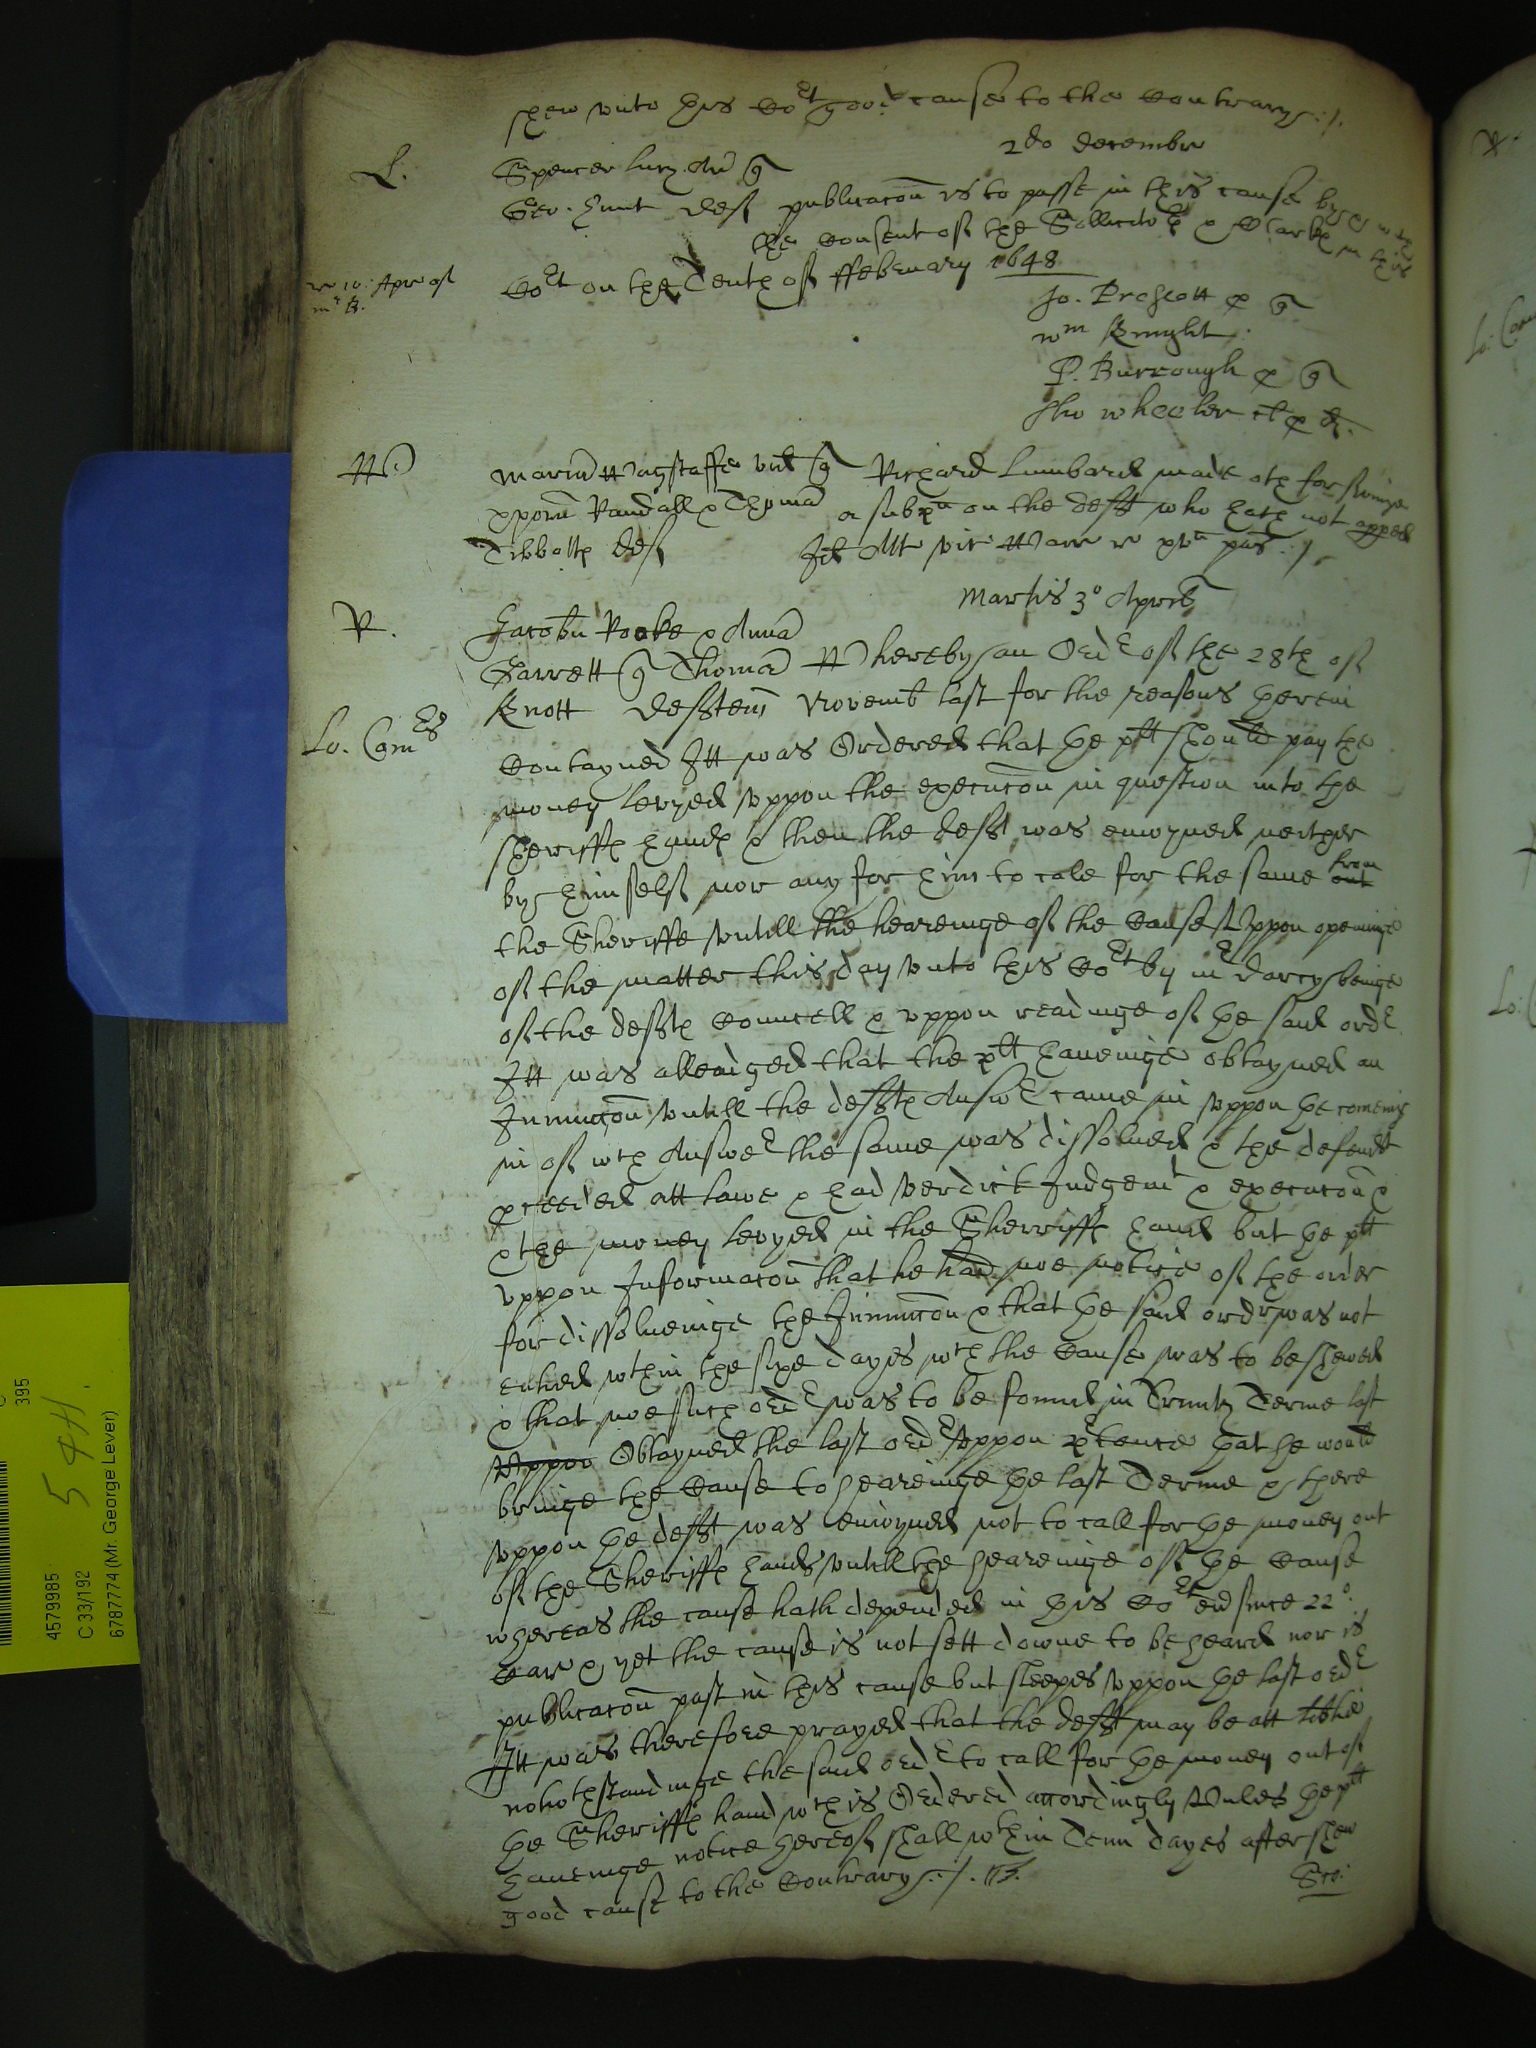 shew unto this Cort good cause to the Contrary ./.
2do decembr
L.
Spencer Lucy Ar q
Geo. Hunt def publicacon is to passe in this cause by & wth
the consent of the Sollicitors & Clarks in this
Cort on the Tenth of ffebruary 1648
re 10: Apr of
mr B.
Jo. Prescott p q
wm Knight
P. Burrough p q
Tho wheeler p d.
W
Maria Wagstaffe vid q Richard Lumbard made oth for serving
xpofer Randall & Thoma a subpa on the defts who hath not appeed
Tibbotts def Id Att vic Warr re xma pas ./.
Martis 3o Aprilis
R.
Jacobu Rooke & Anna
Garrett q Thoma Whereby an Order of the 28th of
Lo. Comrs
Knott defftem Novemb last for the reasons therein
Contayned Itt was Ordered that the plt should pay the
money levyed uppon the execucon in question into the
sheriffs hands & then the defft was enioyned neither
by himself nor any for him to cale for the same out from
the Sheriffe untill the heareinge of the Cause Uppon openinge
of the matter this day unto this Cort by mr darcy beinge
of the deffts Councell & uppon readinge of the said ordr
Itt was alleadged that the plt haueinge obtayned an
Iniunccon untill the deffts Answr came in uppon the comeing
in of wch Answer the same was dissolued & the defendt
pceeded att lawe & had Verdict Iudgemt & execucon &
& the money levyed in the Sherriffs hands but the plt
uppon Informacon that he had noe notice of the order
for dissolueinge the Iniunccon & that the said ordr was not
entred wthin the sixe dayes wch the Cause was to be shewed
& that noe such ordr was to be found in Trinity Terme last
Uppon Obtayned the last ordr uppon ptence that he would
bringe the Cause to heareinge the last Terme & there
uppon the defft was enioyned not to call for the money out
of the Sheriffs hands untill the heareinge of the Cause
whereas the cause hath depended in this Cort end since 22o
Car & yet the cause is not sett downe to be heard nor is
publicacon past in this cause but sleepes uppon the last ordr
Itt was therefore prayed that the defft may be att libtie
notwthstandinge the said ordr to call for the money out of
the Sheriffs hand wch is Ordered accordingly Unles the plt
haueinge notice hereof shall wthin Tenn dayes after shew
good cause to the Contrary ./.
395
4579985
C 33/192
6787774 (Mr. George Lever)
5 4H.
Lo: